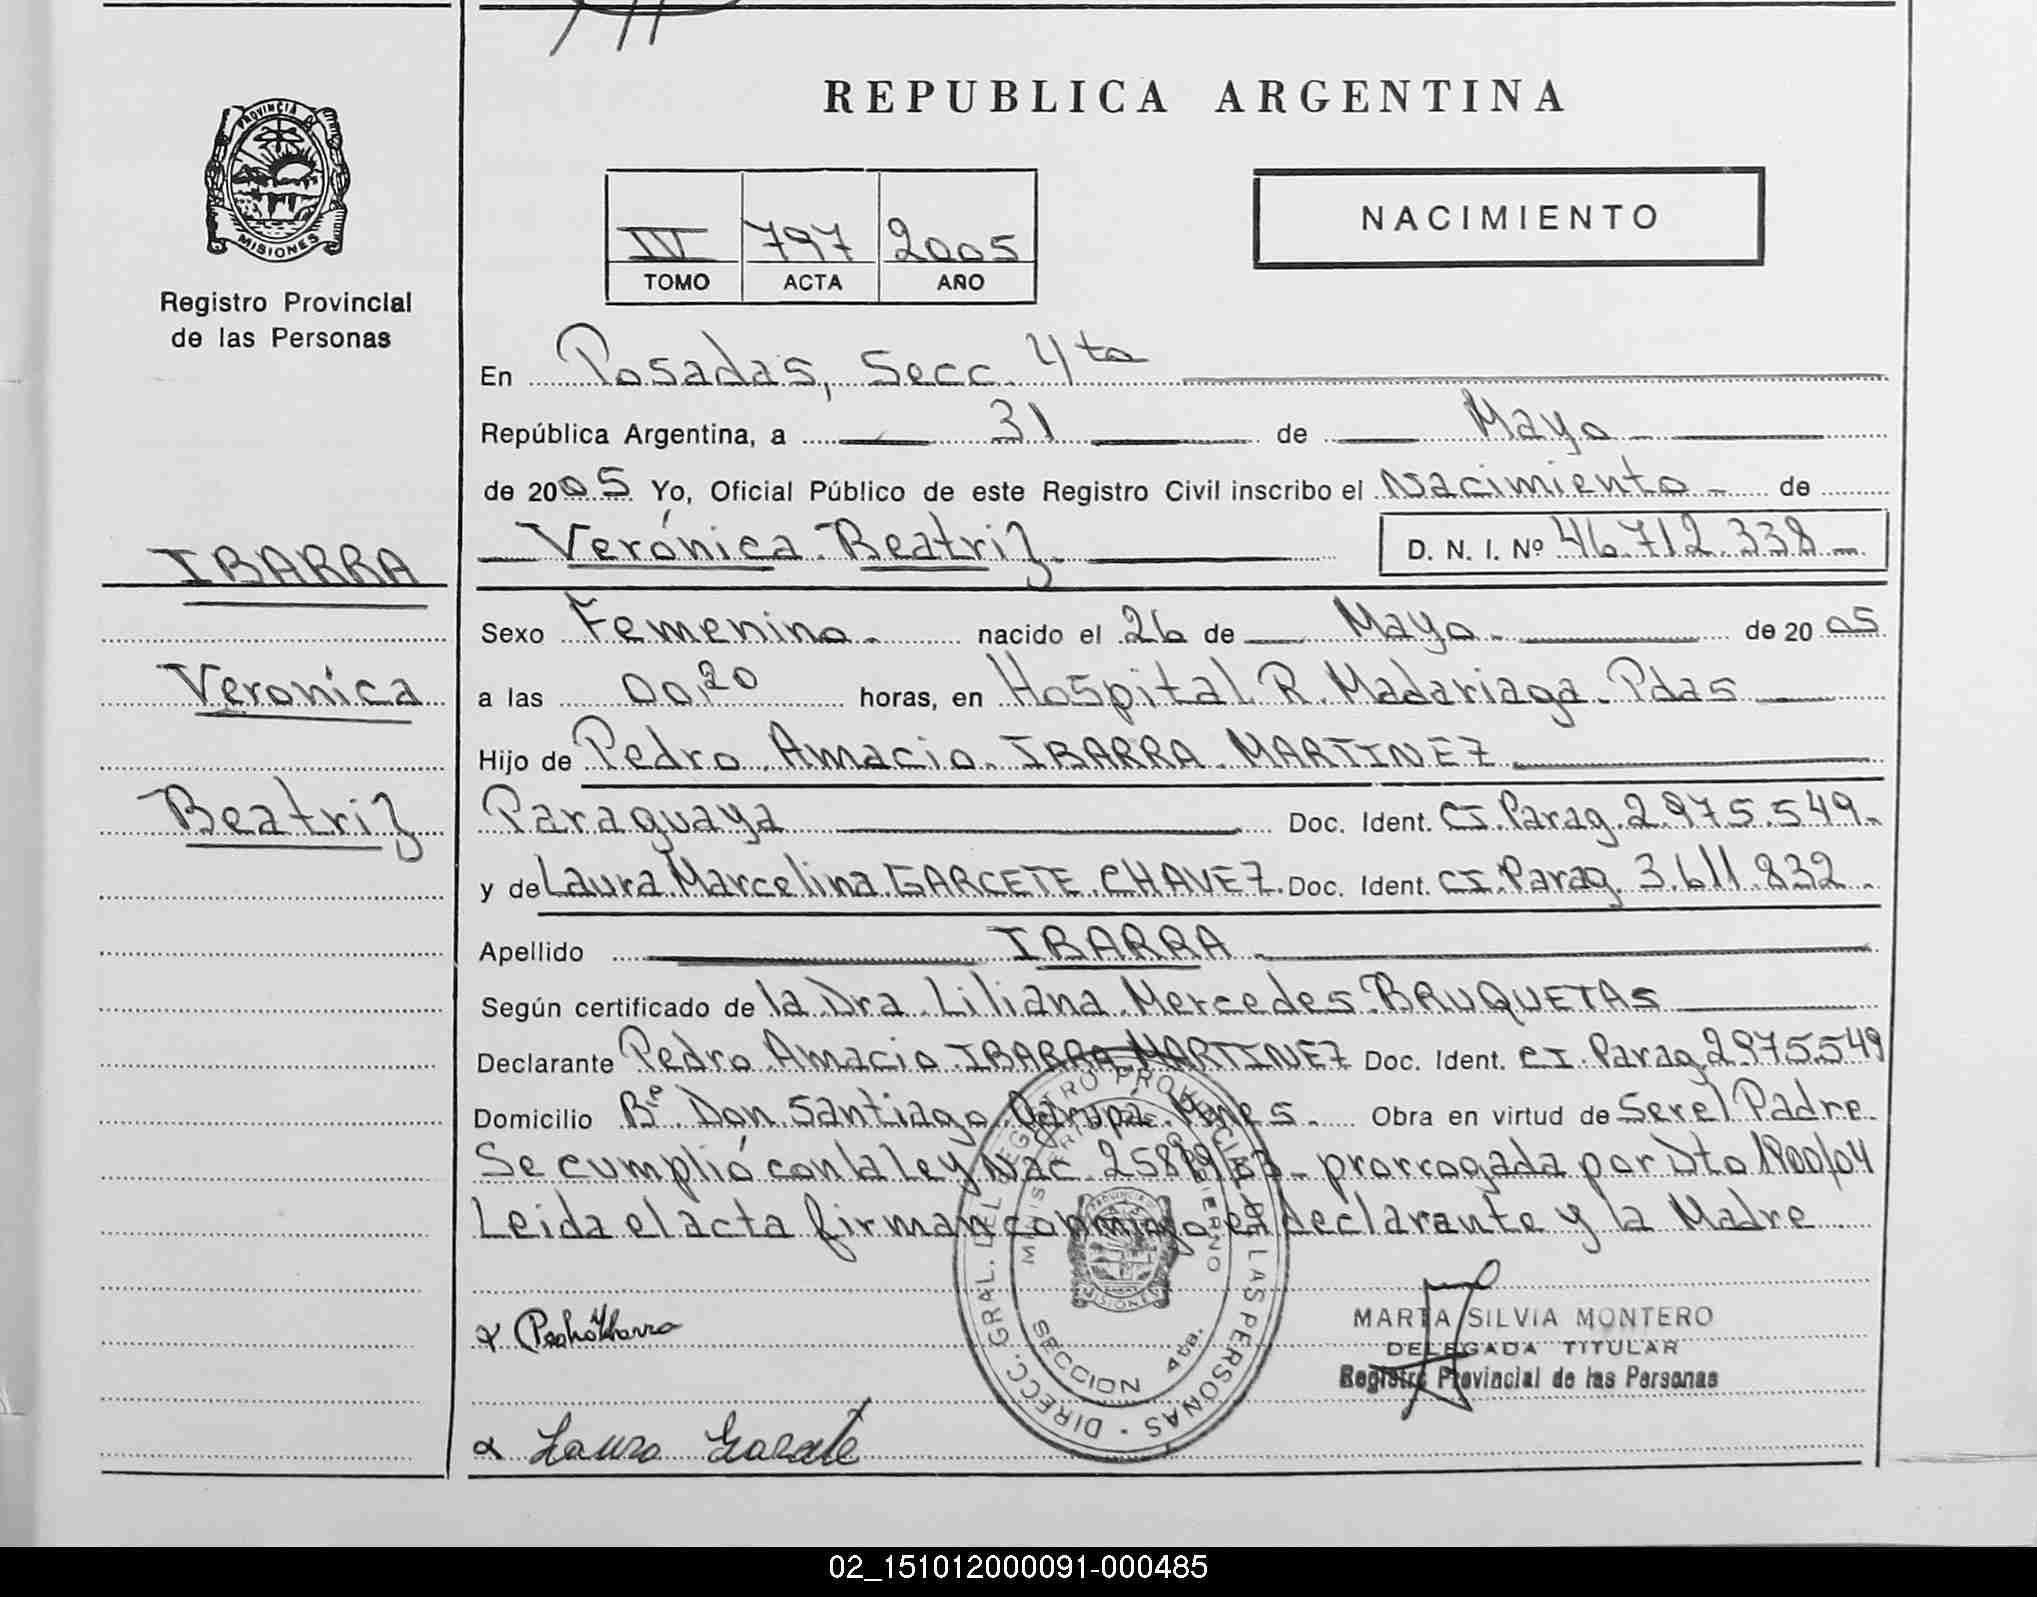 REPUBLICA ARGENTINA
PROVINCIA DE
MISIONES
Registro Provincial
de las Personas
IV 797 2005
TOMO ACTA AÑO
NACIMIENTO
En Posadas, Secc. 4ta
República Argentina, a 31 de Mayo
de 2005 Yo, Oficial Público de este Registro Civil inscribo el Nacimiento de
Verónica Beatriz D. N. I. Nº 46.712.338
IBARRA
Veronica
Beatriz
Sexo Femenino nacido el 26 de Mayo de 2005
a las 00,20 horas, en Hospital R. Madariaga. Pdas
Hijo de Pedro Amacio IBARRA MARTINEZ
Paraguaya Doc. Ident. CI. Parag. 2.975.549
y de Laura Marcelina GARCETE CHAVEZ Doc. Ident. CI. Parag. 3.611.832
Apellido IBARRA
Según certificado de la Dra. Liliana Mercedes BRUQUETAS
Declarante Pedro Amacio IBARRA MARTINEZ Doc. Ident. CI. Parag. 2.975.549
Domicilio Bº Don Santiago Garupá. Mnes. Obra en virtud de Ser el Padre
Se cumplió con la ley Nac. prorrogada por Dto 1900/04
Leida el acta firman conmigo el declarante y la Madre
Pedro Ibarra
Laura Garcete
DIRECC. GRAL. DEL REGISTRO PROVINCIAL DE LAS PERSONAS
SECCION 4ta.
MISIONES
MARTA SILVIA MONTERO
DELEGADA TITULAR
Registro Provincial de las Personas
02_151012000091-000485